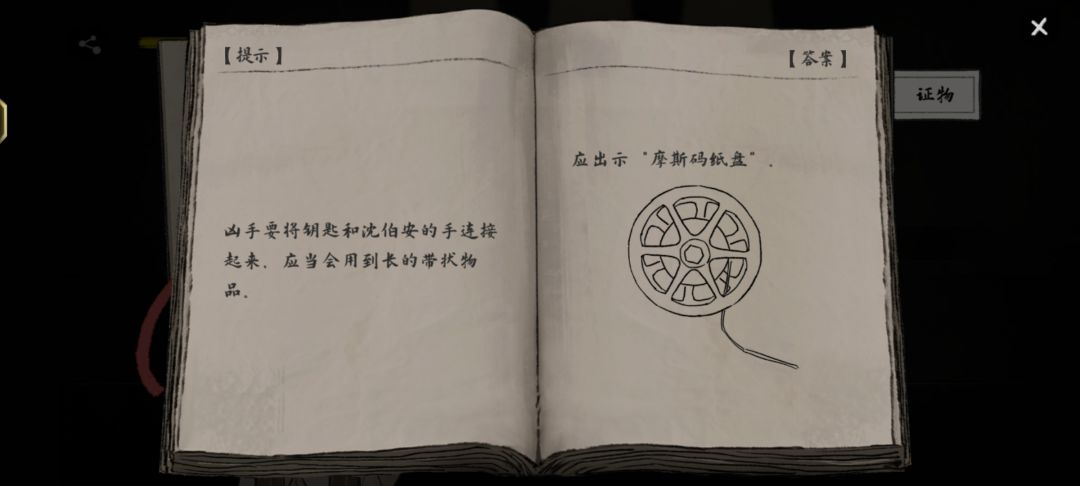 【提示】
凶手要将钥匙和沈伯安的手连接
起来，应当会用到长的带状物
品。
【答案】
应出示“摩斯码纸盘”。
证物